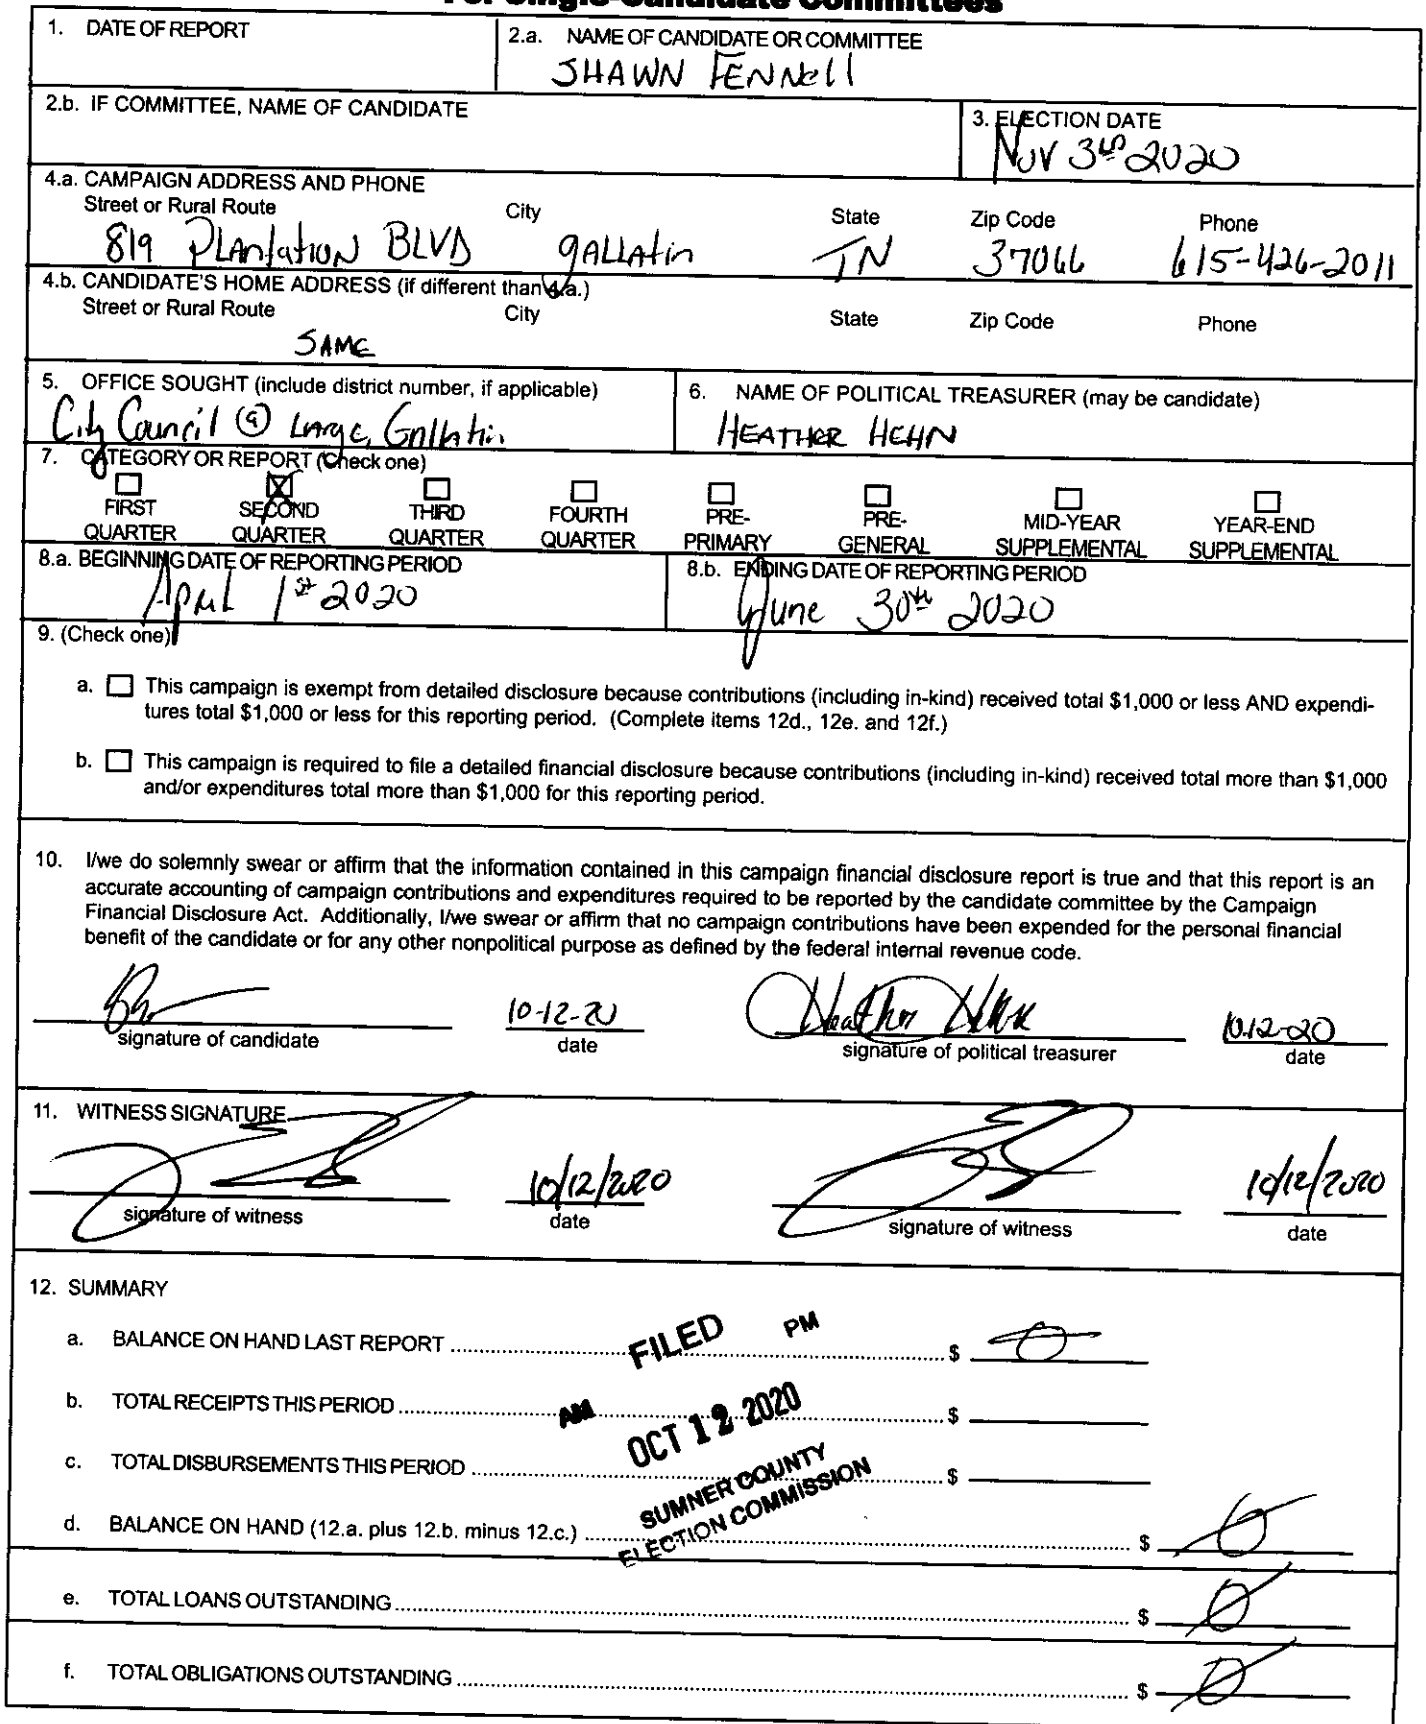 For Single-Candidate Committees
1. DATE OF REPORT
2.a. NAME OF CANDIDATE OR COMMITTEE
SHAWN FENNell
2.b. IF COMMITTEE, NAME OF CANDIDATE
3. ELECTION DATE
Nov 3rd 2020
4.a. CAMPAIGN ADDRESS AND PHONE
Street or Rural Route City State Zip Code Phone
819 PLAntation BLVD gALLAtin TN 37066 615-426-2011
4.b. CANDIDATE'S HOME ADDRESS (if different than 4.a.)
Street or Rural Route City State Zip Code Phone
SAME
5. OFFICE SOUGHT (include district number, if applicable)
City Council @ Large, Gallatin
6. NAME OF POLITICAL TREASURER (may be candidate)
HEATHER HEHN
7. CATEGORY OR REPORT (Check one)
FIRST QUARTER
SECOND QUARTER
THIRD QUARTER
FOURTH QUARTER
PRE-PRIMARY
PRE-GENERAL
MID-YEAR SUPPLEMENTAL
YEAR-END SUPPLEMENTAL
8.a. BEGINNING DATE OF REPORTING PERIOD
April 1st 2020
8.b. ENDING DATE OF REPORTING PERIOD
June 30th 2020
9. (Check one)
a. This campaign is exempt from detailed disclosure because contributions (including in-kind) received total $1,000 or less AND expendi-
tures total $1,000 or less for this reporting period. (Complete items 12d., 12e. and 12f.)
b. This campaign is required to file a detailed financial disclosure because contributions (including in-kind) received total more than $1,000
and/or expenditures total more than $1,000 for this reporting period.
10. I/we do solemnly swear or affirm that the information contained in this campaign financial disclosure report is true and that this report is an
accurate accounting of campaign contributions and expenditures required to be reported by the candidate committee by the Campaign
Financial Disclosure Act. Additionally, I/we swear or affirm that no campaign contributions have been expended for the personal financial
benefit of the candidate or for any other nonpolitical purpose as defined by the federal internal revenue code.
10-12-20 Heather Hehn 10-12-20
signature of candidate date signature of political treasurer date
11. WITNESS SIGNATURE
10/12/2020 10/12/2020
signature of witness date signature of witness date
12. SUMMARY
a. BALANCE ON HAND LAST REPORT $ 0
b. TOTAL RECEIPTS THIS PERIOD $
c. TOTAL DISBURSEMENTS THIS PERIOD $
d. BALANCE ON HAND (12.a. plus 12.b. minus 12.c.) $ 0
e. TOTAL LOANS OUTSTANDING $ 0
f. TOTAL OBLIGATIONS OUTSTANDING $ 0
FILED PM
AM OCT 12 2020
SUMNER COUNTY
ELECTION COMMISSION